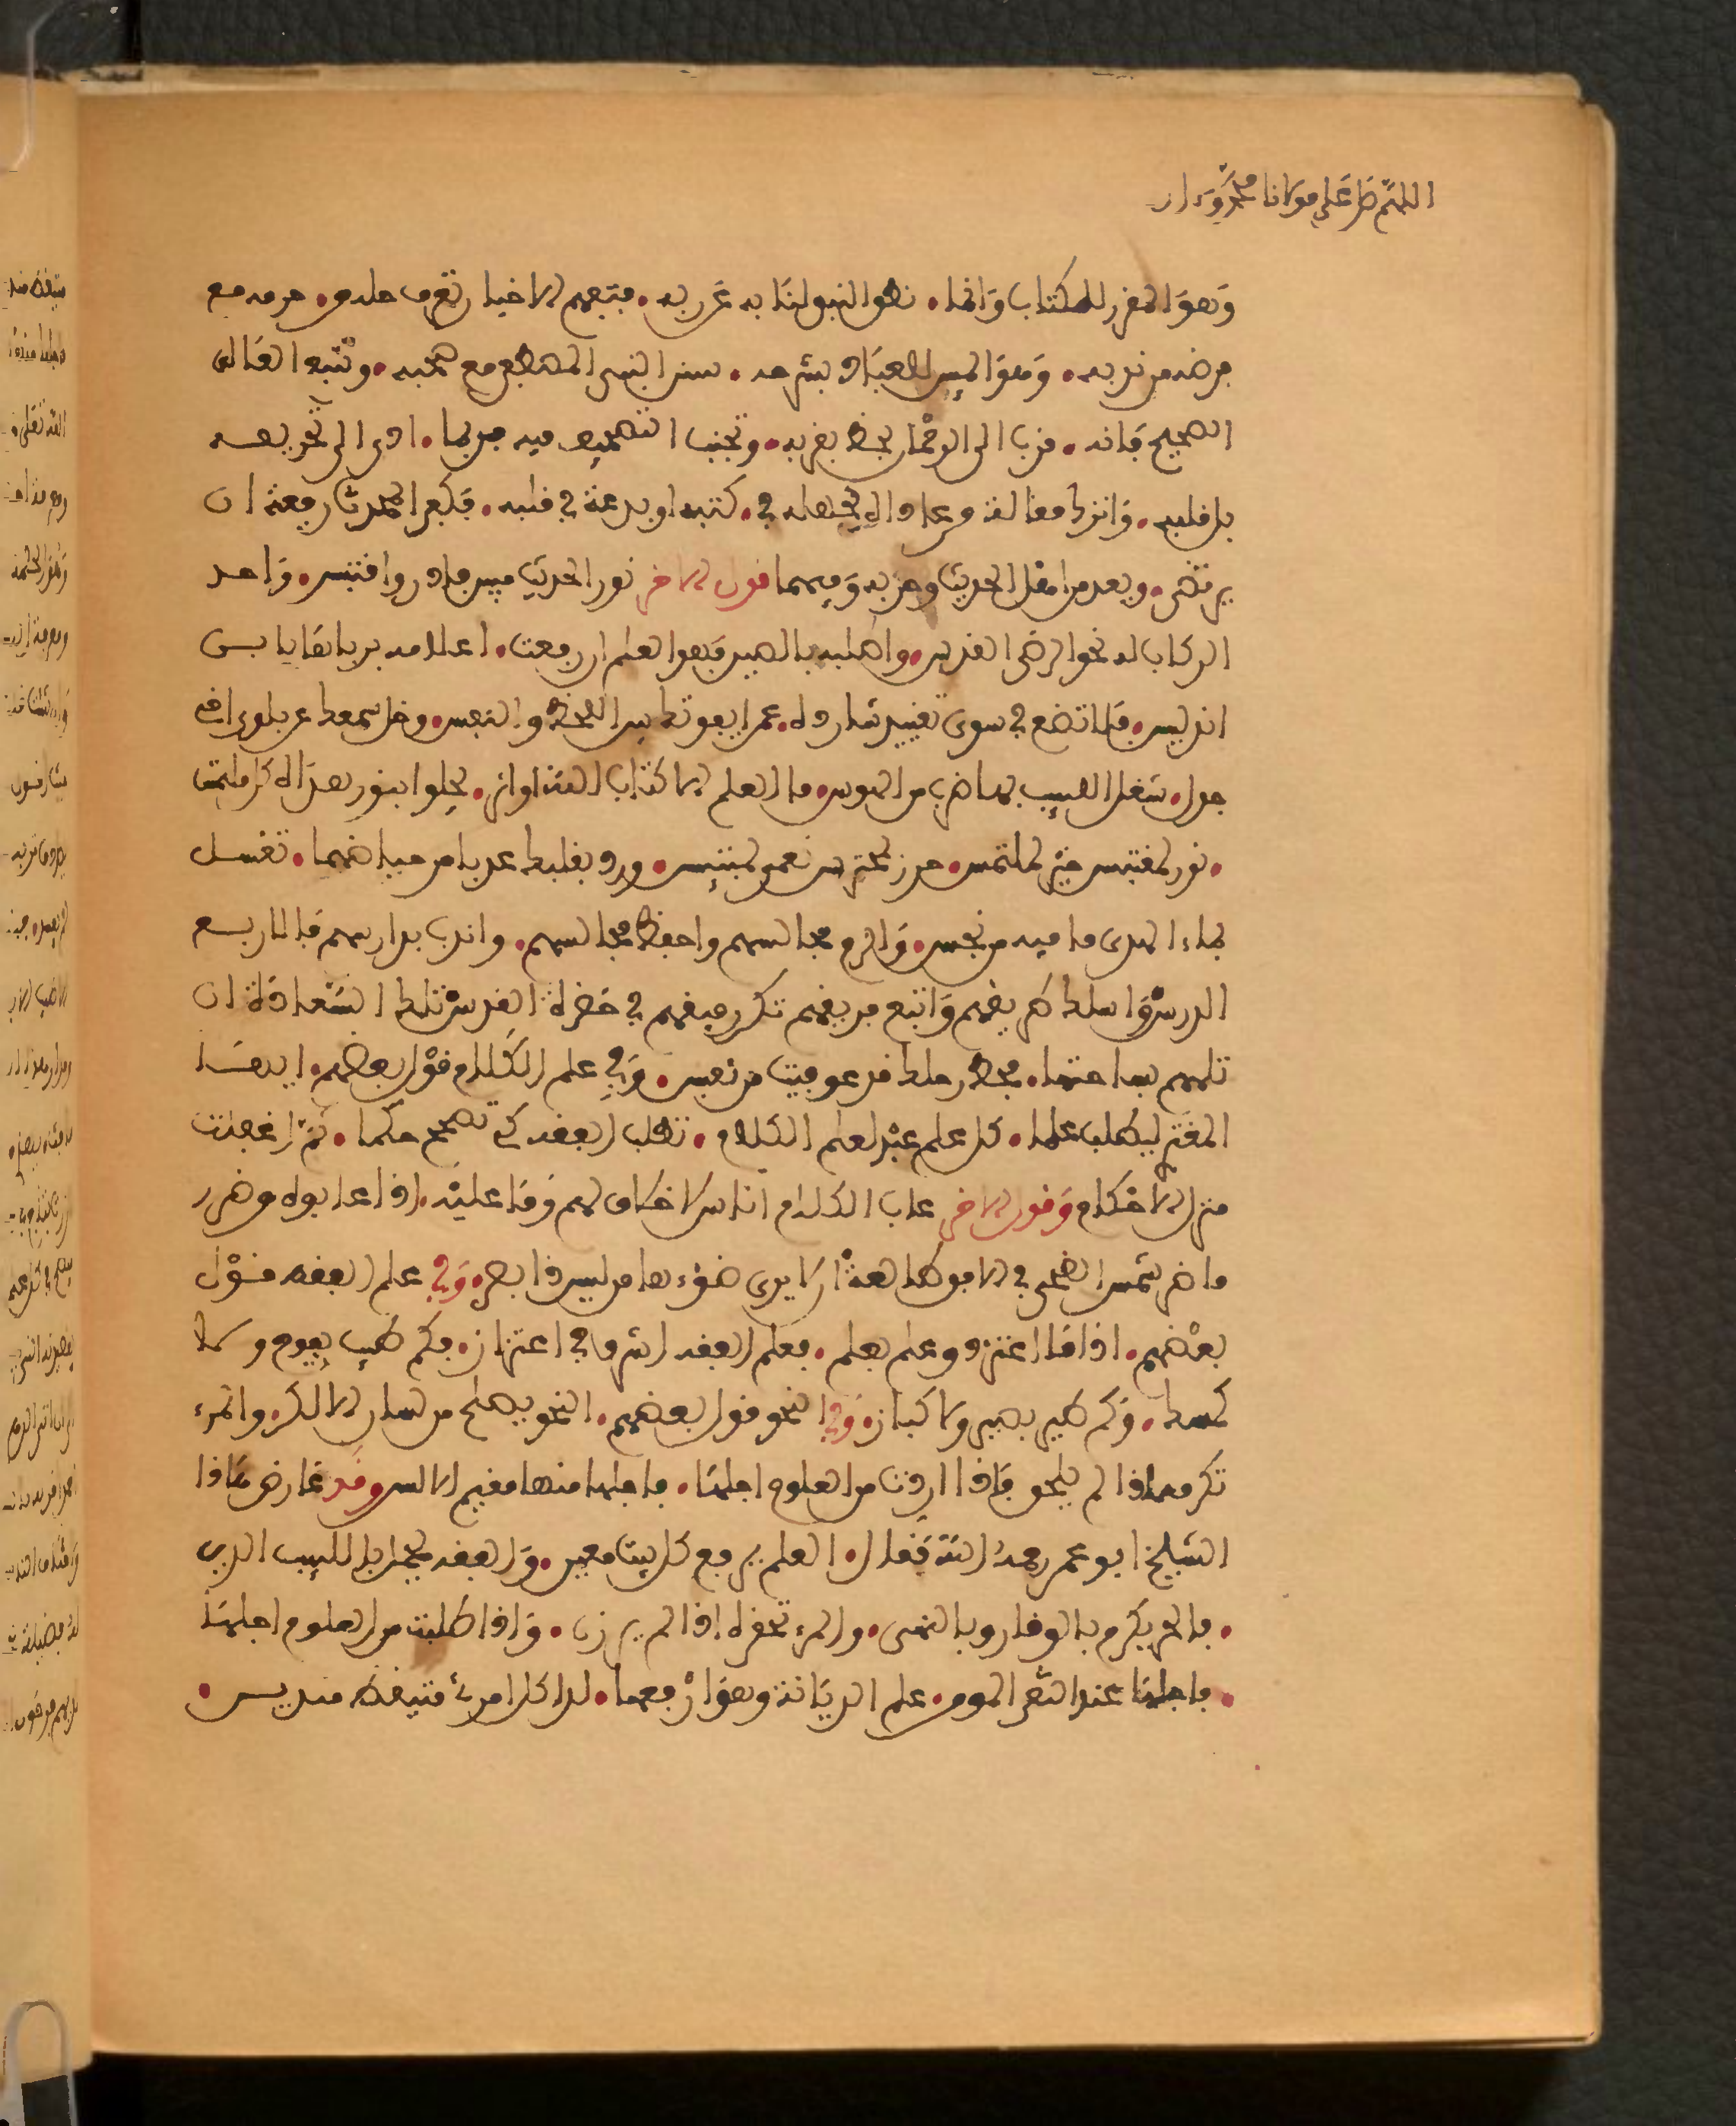 اللهم صل على مولانا محمد وءال
وهو المفسر للكتاب وانما نطق النبي لنا به عن ربه فتفهم الاخبار تعرف حله من حرمه مع
فرضه من ندبه وهو المبين للعباد بشرحه سنن النبي المصطفى مع صحبه وتتبع العالي
الصحيح فانه قرب الى الرحمان تحظ بقربه وتجنب التصحيف فيه فربما ادى الى تحريفه
بل قلبه واترك مقالة من لحاك بجهله في كتبه او بدعة في قلبه فكفى المحدث رفعة ان
يرتضى ويعد من اهل الحديث وحزبه وفيهما قول الاخر نور الحديث مبين فادن واقتبس واحد
الركاب له نحو الرضى الندس واطلبه بالصين فهو العلم ان رفعت اعلامه برباها يا بن
اندلس فلا تضع في سوى تقييد شارده عمرا يفوتك بين اللحظ والنفس وخل سمعك عن بلوى اخي
جدل شغل اللبيب بها ضرب من الهوس ما العلم الا كتاب الله او اثر يجلو بنور هداه كل ملتبس
نور لمقتبس خير لملتمس حرز لمحترس نعمى لمبتئس ورد بقلبك عذبا من حياضهما تغسل
بماء الهدى ما فيه من نجس والزم مجالسهم واحفظ مجالسهم واندب مدارسهم فالاربع
الدرس واسلك طريقهم واتبع فريقهم تكن رفيقهم في حضرة القدس تلك السعادة ان
تلمم بساحتها فحط رحلك قد عوفيت من تعس وفي علم الكلام قول بعضهم ايها
المغتدي ليطلب علما كل علم عبد لعلم الكلام تطلب الفقه كي تصحح حكما ثم اغفلت
منزل الاحكام وقول الاخر عاب الكلام اناس لا خلاق لهم وما عليه اذا عابوه من ضرر
ما ضر شمس الضحى في الافق طالعة ان لا يرى ضوءها من ليس ذا بصر وفي علم الفقه قول
بعضهم اذا ما اعتز ذو علم بعلم فعلم الفقه اشرف في اعتزاز فكم طيب يفوح ولا
كمسك وكم طير يطير ولا كباز وفي النحو قول بعضهم النحو يصلح من لسان الالكن والمرء
تكرمه اذا لم يلحن فاذا اردت من العلوم اجلها فاجلها منها مقيم الالسن وقد عارض هاذا
الشيخ ابو عمر رحمه الله فقال العلم يرفع كل بيت معين والفقه يجمل باللبيب الدين
فالحر يكرم بالوقار وبالنهى والمرء تحقره اذا لم يرزن واذا طلبت من العلوم اجلها
فاجلها عند التقي المومن علم الديانة وهو ارفعها لدى كل امرئ متيقظ متدين